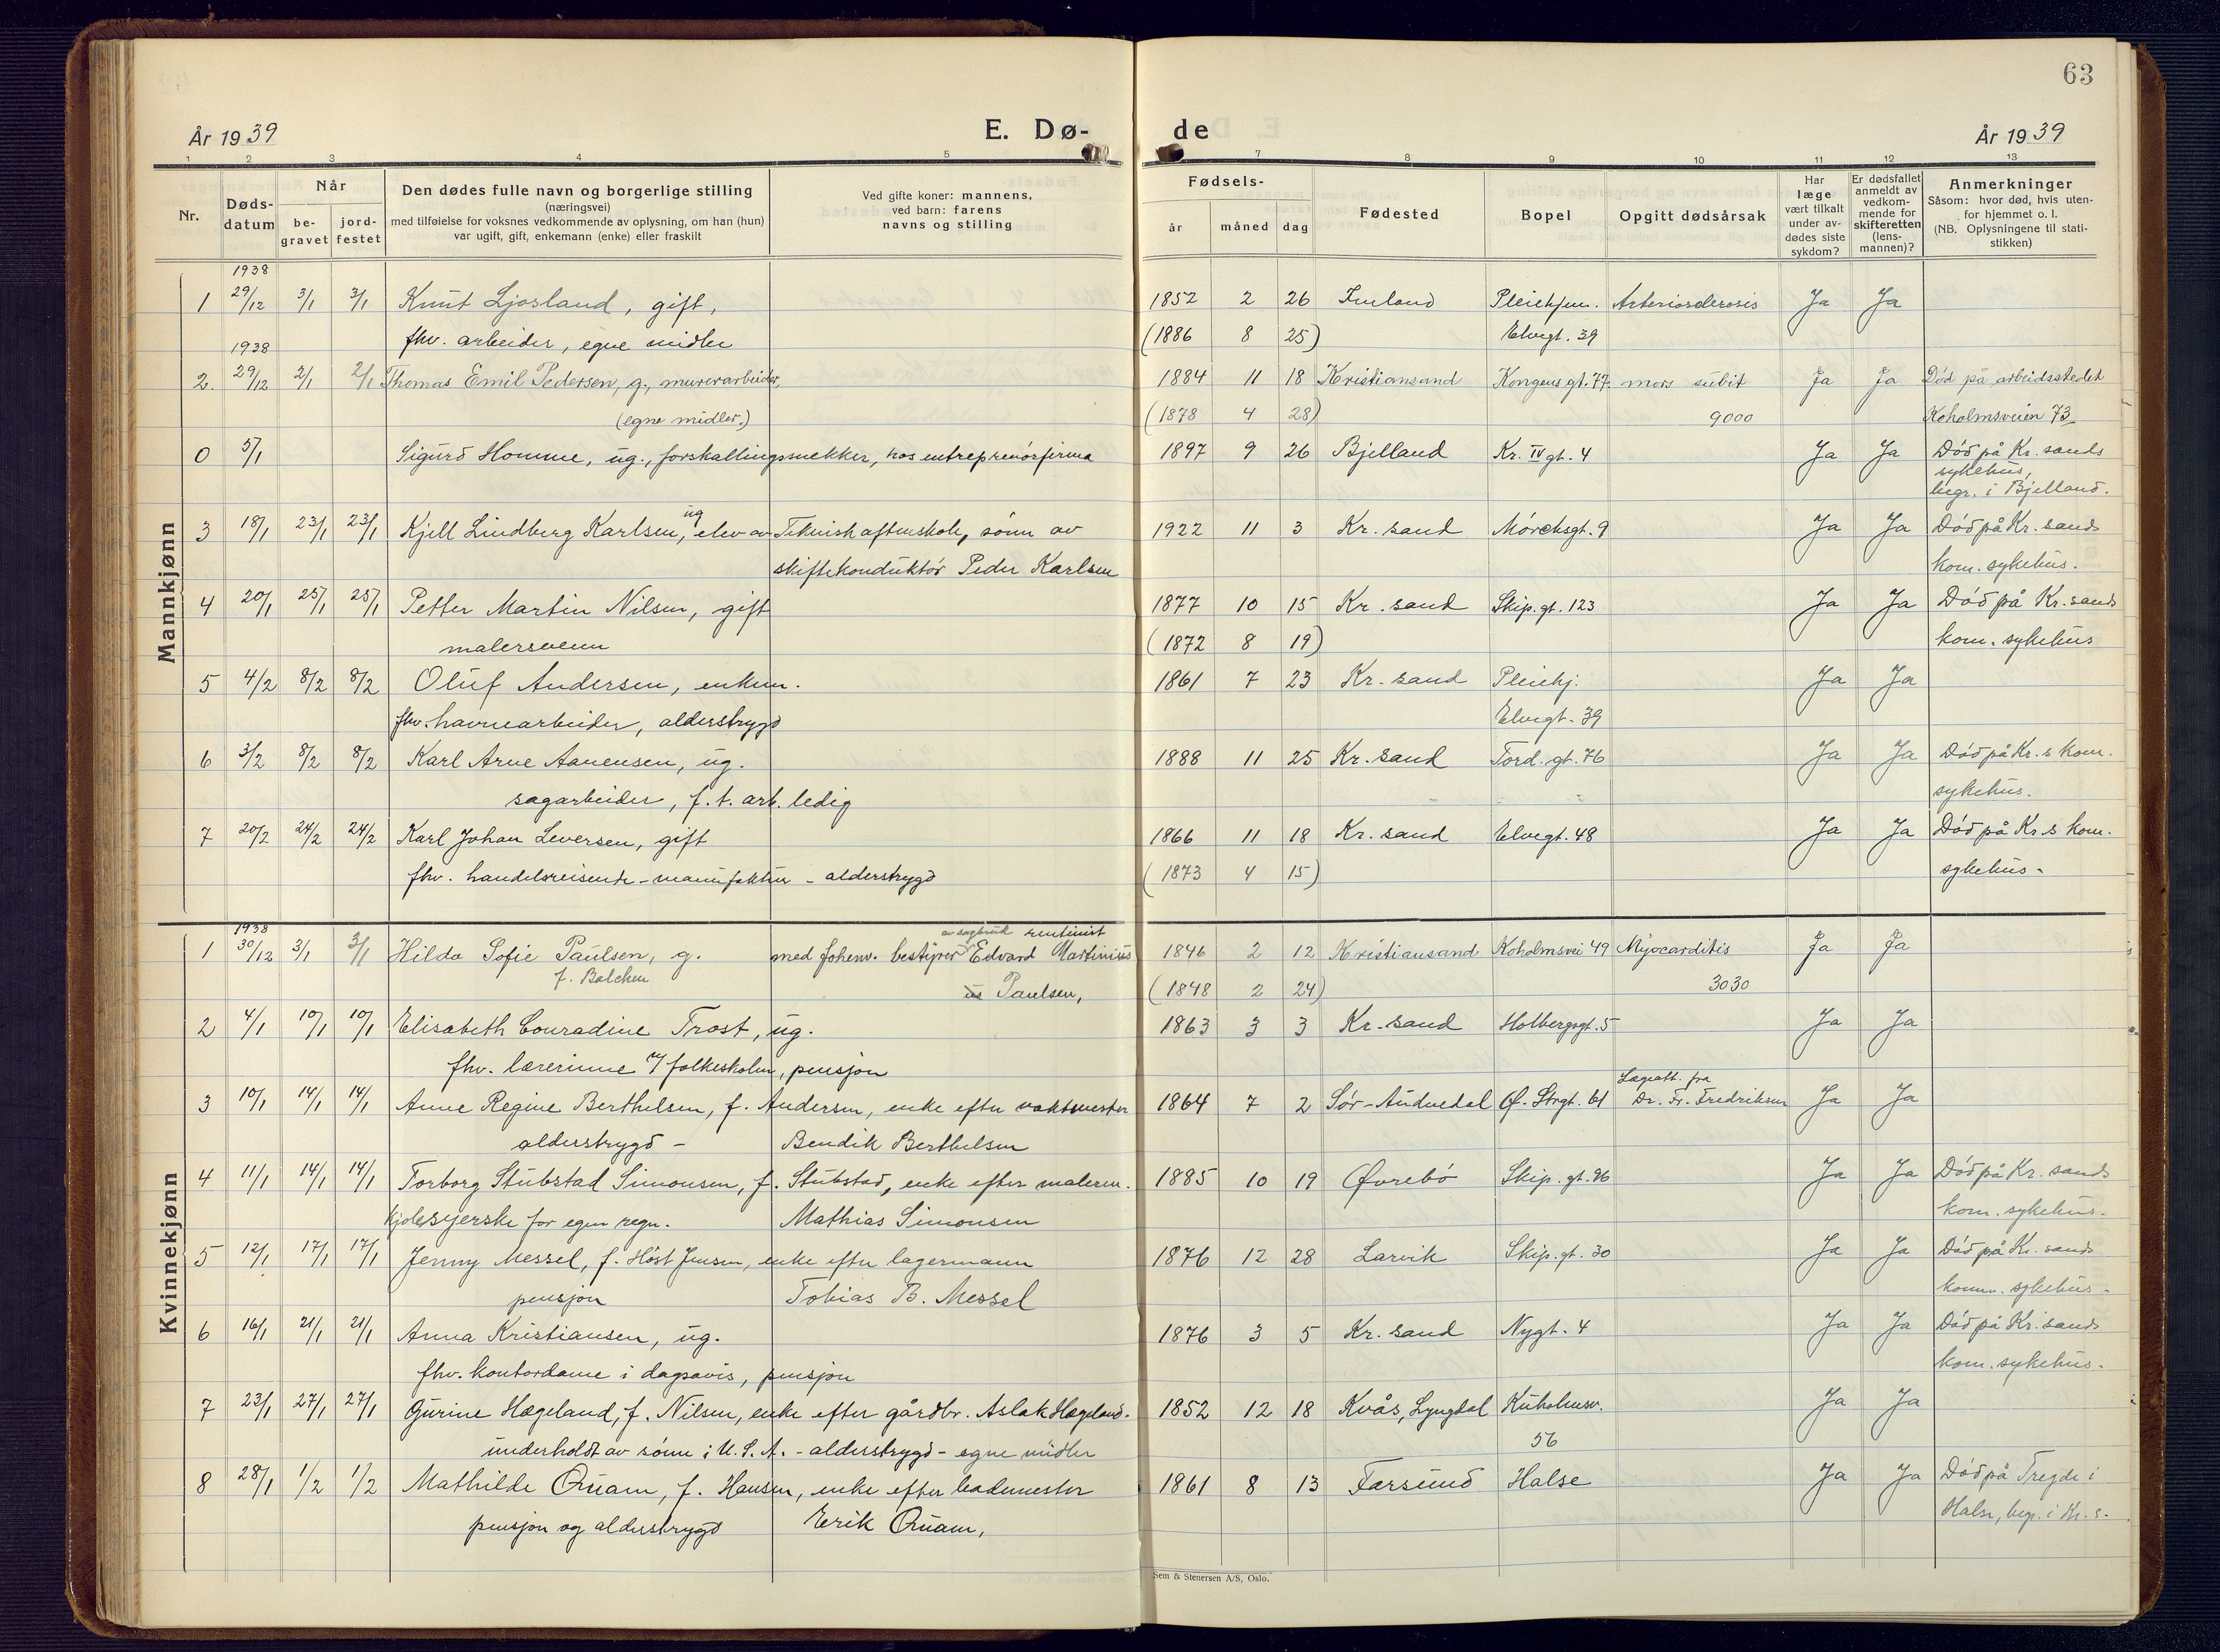 63
År 1939
E. Dø-
de
År 1939
1 2 3 4 5 7 8 9 10 11 12 13
Nr.
Døds-
datum
Når
be-
gravet
jord-
festet
Den dødes fulle navn og borgerlige stilling
(næringsvei)
med tilføielse for voksnes vedkommende av oplysning, om han (hun)
var ugift, gift, enkemann (enke) eller fraskilt
Ved gifte koner: mannens,
ved barn: farens
navns og stilling
Fødsels-
år måned dag
Fødested
Bopel
Opgitt dødsårsak
Har
læge
vært tilkalt
under av-
dødes siste
sykdom?
Er dødsfallet
anmeldt av
vedkom-
mende for
skifteretten
(lens-
mannen)?
Anmerkninger
Såsom: hvor død, hvis uten-
for hjemmet o. l.
(NB. Oplysningene til stati-
stikken)
Mannkjønn
1938
1 29/12 3/1 3/1 Knut Ljosland, gift, 1852 2 26 Pleiehjem. Arteriosclerosis Ja Ja
fhv. arbeider, egne midler (1886 8 25) Elvegt. 39
1938
2. 29/12 2/1 2/1 Thomas Emil Pedersen, g., murerarbeider, 1884 11 18 Kristiansand Kongensgt. 77 mors subit Ja Ja Død på arbeidsstedet
(egne midler.) (1878 4 28) 9000 Koholmsveien 73
0 5/1 Sigurd Homme, ug., forskallingssnekker, hos entreprenørfirma 1897 9 26 Bjelland Kr. IV gt. 4 Ja Ja Död på Kr. sands
sykehus,
begr. i Bjelland.
3 18/1 23/1 23/1 Kjell Lindberg Karlsen, ug elev av Teknisk aftenskole, sönn av 1922 11 3 Kr. sand Mörchsgt. 9 Ja Ja Död på Kr. sands
skiftekonduktör Peder Karlsen kom. sykehus.
4 20/1 25/1 25/1 Petter Martin Nilsen, gift 1877 10 15 Kr. sand Skip. gt. 123 Ja Ja Död på Kr. sands
malersvenn (1872 8 19) kom. sykehus
5 4/2 8/2 8/2 Oluf Andersen, enkem. 1861 7 23 Kr. sand Pleiehj. Ja Ja
fhv. havnearbeider, alderstrygd Elvegt. 39
6 3/2 8/2 8/2 Karl Arne Aanensen, ug. 1888 11 25 Kr. sand Tord. gt. 76 Ja Ja Död på Kr. s kom.
sagarbeider, f. t. arb. ledig sykehus.
7 20/2 24/2 24/2 Karl Johan Leversen, gift 1866 11 18 Kr. sand Elvegt. 48 Ja Ja Död på Kr. s kom.
fhv. handelsreisende - manufaktur - alderstrygd (1873 4 15) sykehus.
Kvinnekjønn
1938 av sagbruk rentinist
1 30/12 3/1 3/1 Hilda Sofie Paulsen, g. med fohenv. bestyrer Edvard Martinius 1846 2 12 Kristiansand Koholmsvei 49 Myocarditis Ja Ja
f. Balchen Paulsen, (1848 2 24) 3030
2 4/1 10/1 10/1 Elisabeth Conradine Trost, ug. 1863 3 3 Kr. sand Holbergsgt. 5 Ja Ja
fhv. lærerinne v/ folkeskolen, pensjon
3 10/1 14/1 14/1 Anne Regine Berthelsen, f. Andersen, enke efter vaktmester 1864 7 2 Sör-Audnedal Ø. Strgt. 61 Lægeatt. fra Dr. Fr. Fredriksen Ja Ja
alderstrygd - Bendik Berthelsen
4 11/1 14/1 14/1 Torborg Stubstad Simonsen, f. Stubstad, enke efter malerm. 1885 10 19 Øvrebö Skip. gt. 96 Ja Ja Död på Kr. sands
kjolesyerske for egen regn. Mathias Simonsen kom. sykehus.
5 12/1 17/1 17/1 Jenny Messel, f. Höst Jensen, enke efter lagermann 1876 12 28 Larvik Skip. gt. 30 Ja Ja Död på Kr. sands
pensjon Tobias B. Messel komm. sykehus.
6 16/1 21/1 21/1 Anna Kristiansen, ug. 1876 3 5 Kr. sand Nygt. 4 Ja Ja Död på Kr. sands
fhv. kontordame i dagsavis, pensjon kom. sykehus.
7 23/1 27/1 27/1 Gurine Hægeland, f. Nilsen, enke efter gårdbr. Aslak Hægeland. 1852 12 18 Kvås, Lyngdal Kuholmsv. Ja Ja
underholdt av sönn i U.S.A. - alderstrygd - egne midler 56
8 28/1 1/2 1/2 Mathilde Qvam, f. Hansen, enke efter lademester 1861 8 13 Farsund Halse Ja Ja Död på Tregde i
pensjon og alderstrygd Erik Qvam, Halse, begr. i Kr. s.
Sem & Stenersen A/S, Oslo.